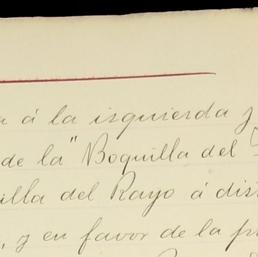 á la izquierda y
de la "Boquilla del
illa del Rayo á dis
, y en favor de la p